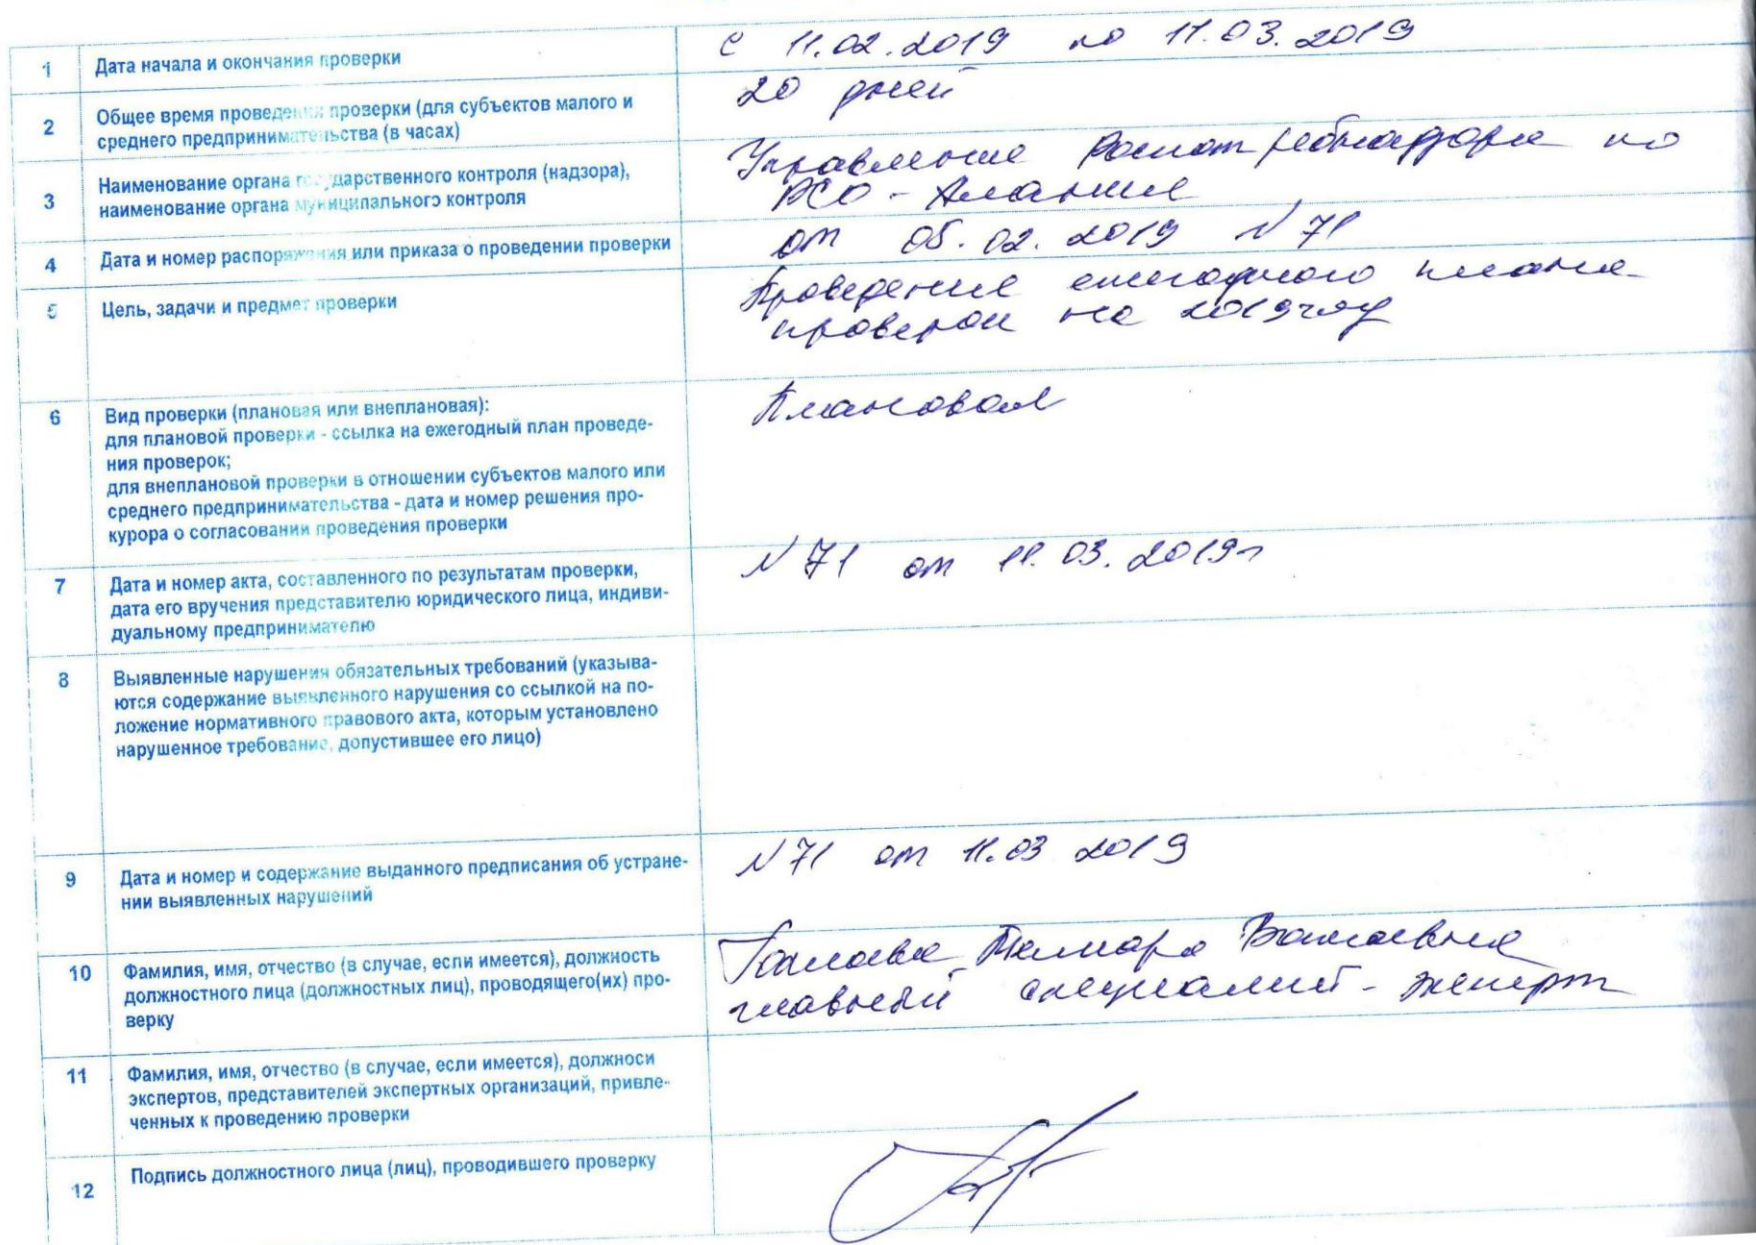 1 Дата начала и окончания проверки с 11.02.2019 по 11.03.2019
2 Общее время проведения проверки (для субъектов малого и 20 дней
среднего предпринимательства (в часах)
3 Наименование органа государственного контроля (надзора), Управление Роспотребнадзора по
наименование органа муниципального контроля РСО - Алания
4 Дата и номер распоряжения или приказа о проведении проверки от 05.02.2019 N 71
5 Цель, задачи и предмет проверки Проведение ежегодного плана
проверок на 2019 год
6 Вид проверки (плановая или внеплановая): Плановая
для плановой проверки - ссылка на ежегодный план проведе-
ния проверок;
для внеплановой проверки в отношении субъектов малого или
среднего предпринимательства - дата и номер решения про-
курора о согласовании проведения проверки
7 Дата и номер акта, составленного по результатам проверки, N 71 от 11.03.2019г
дата его вручения представителю юридического лица, индиви-
дуальному предпринимателю
8 Выявленные нарушения обязательных требований (указыва-
ются содержание выявленного нарушения со ссылкой на по-
ложение нормативного правового акта, которым установлено
нарушенное требование, допустившее его лицо)
9 Дата и номер и содержание выданного предписания об устране- N 71 от 11.03 2019
нии выявленных нарушений
10 Фамилия, имя, отчество (в случае, если имеется), должность
должностного лица (должностных лиц), проводящего(их) про- главный специалист - эксперт
верку
11 Фамилия, имя, отчество (в случае, если имеется), должноси
экспертов, представителей экспертных организаций, привле-
ченных к проведению проверки
12 Подпись должностного лица (лиц), проводившего проверку